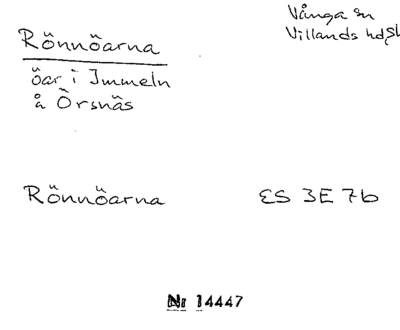 Rönnöarna
Vånga sn
Villands hd, Sk
öar i Immeln
å Örsnäs
Rönnöarna ES 3E 7b
Nr 14447